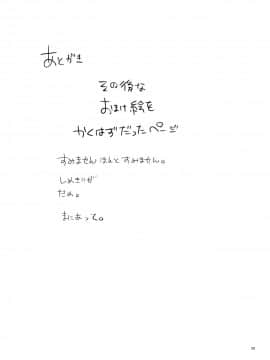 あとがき
その後な
おまけ絵を
かくはずだったページ
すみません ほんとすみません。
しめきりが
だめ。
まにあって。